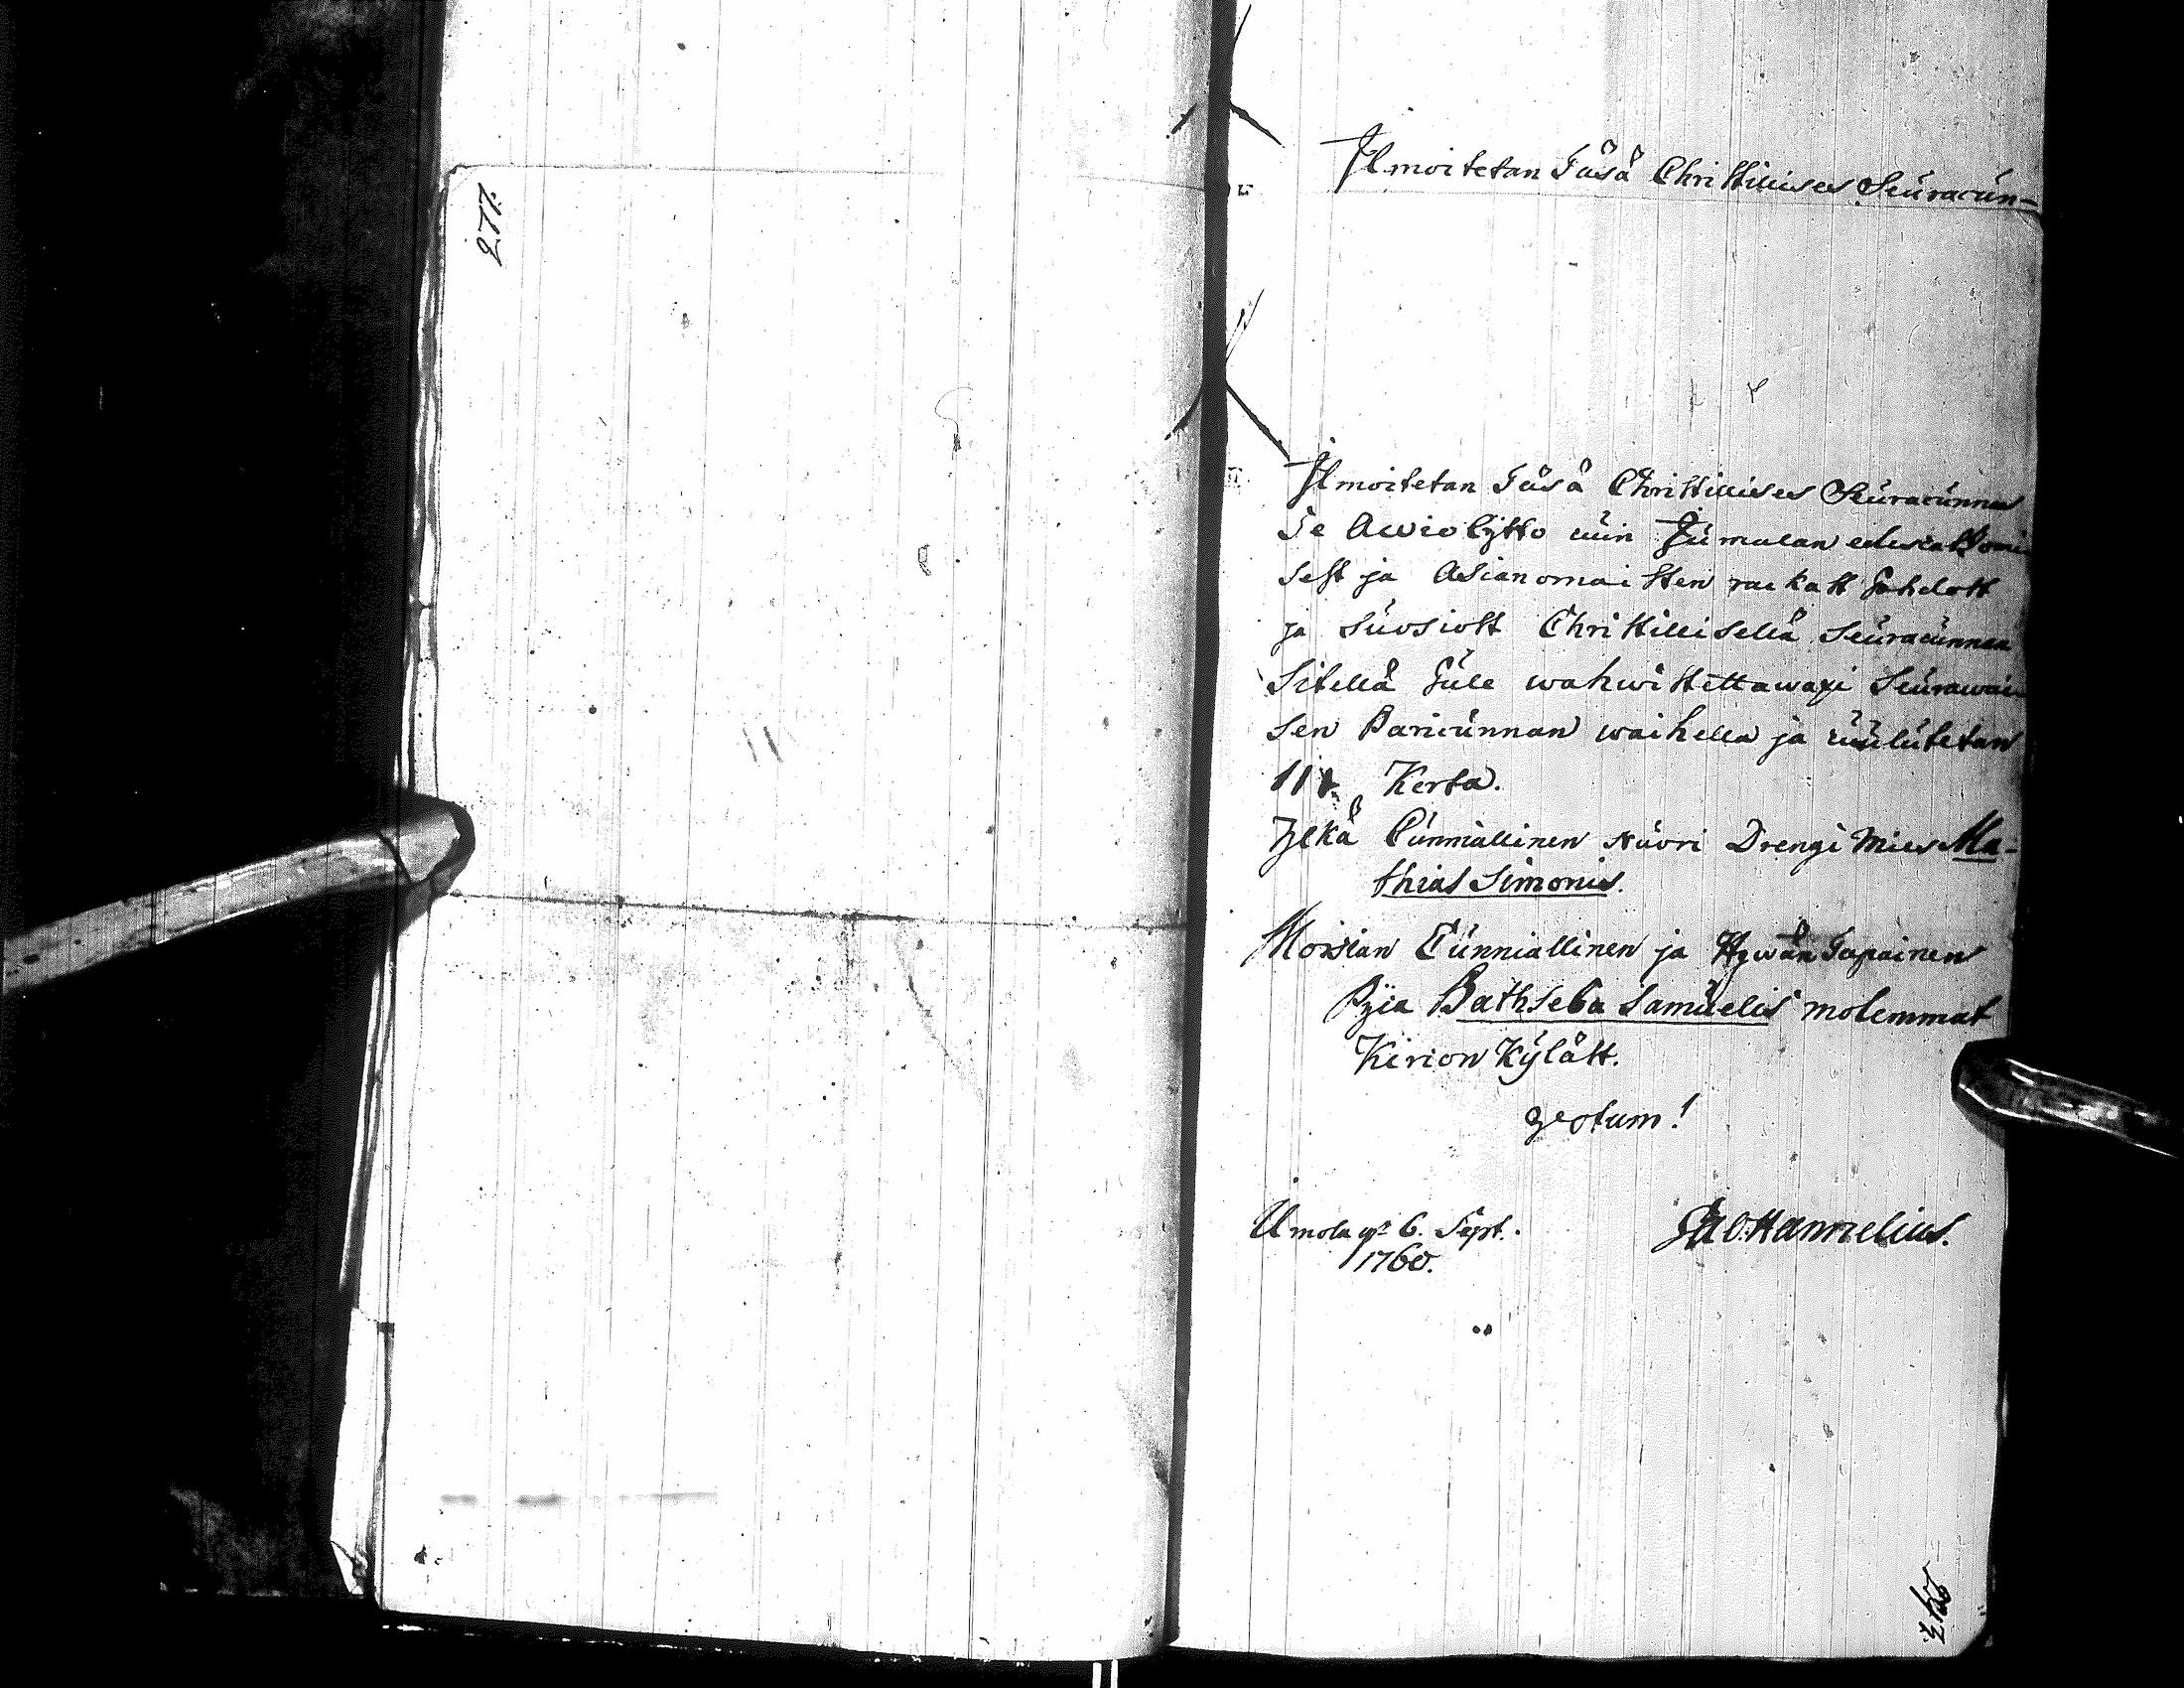 277.
Ilmoitetan Täsä Christillises Seuracun-
Ilmoitetan Täsä Christillises Seuracunnas
Se Awio lijtto cuin Jumalan edescattomi
sest ja Asianomaisten rackast Tahdost
ja suosiost Christillisellä Seuracunnan
Sitellä Tule wahwistettawaxi Seurawai
sen Pariscunnan waihella ja cuulutetan
III. Kerta.
Ylkä Cunniallinen Nuori Drengi Mies Ma-
thias Simonis.
Morsian Cunniallinen ja Hywän Tapainen
Pijca Bathseba Samuelis molemmat
Kirion Kylätt.
Votum!
Umola 6. Sept.
1760.
Jac. Hammelius.